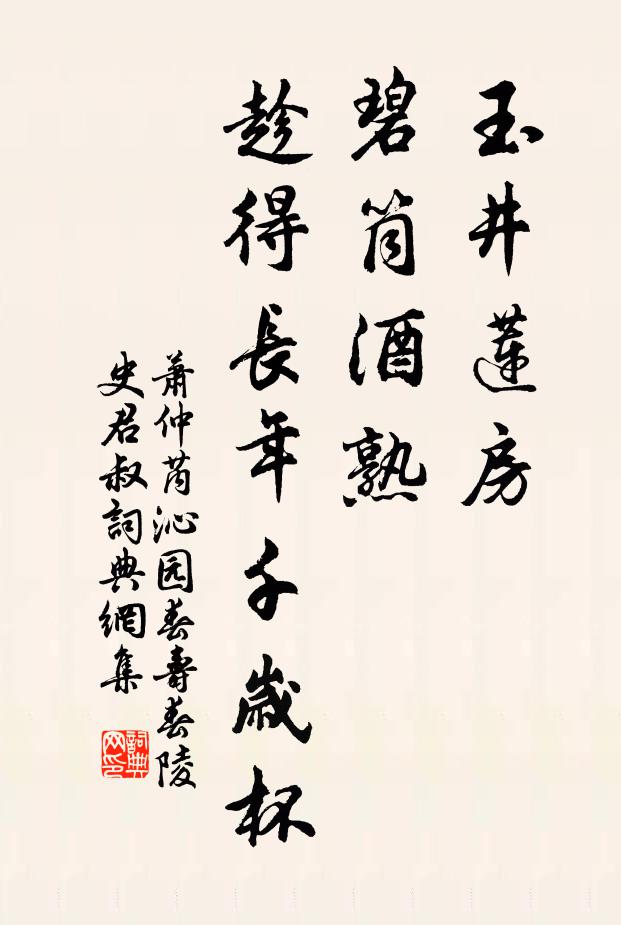 玉井蓮房
碧筒酒熟
趁得長年千歲杯
蕭仲芮沁园春壽春陵
史君叔詞典網集
詞典网印